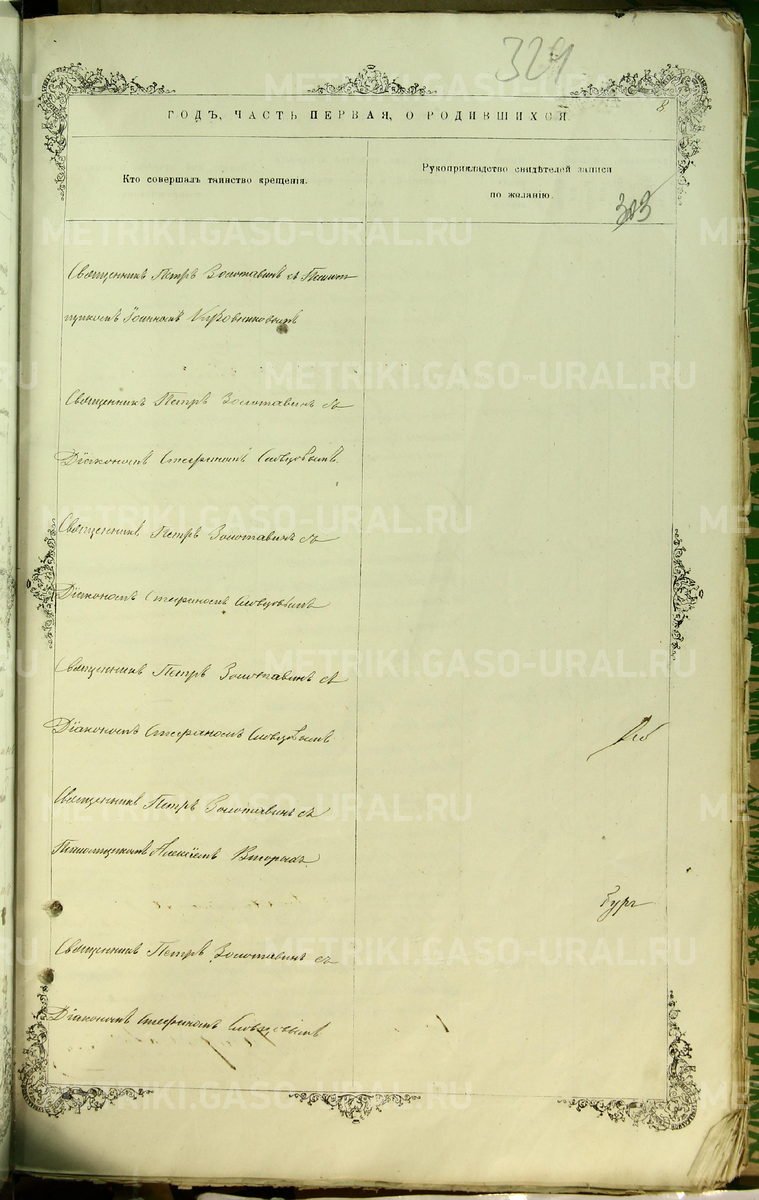 329
8
ГОДЪ, ЧАСТЬ ПЕРВАЯ, О РОДИВШИХСЯ.
Кто совершалъ таинство крещенія.
Рукоприкладство свидѣтелей записи
по желанію.
323
Священникъ Петръ Золотавинъ съ Псаломщ
щикомъ Іоанномъ
Священникъ Петръ Золотавинъ съ
Діакономъ Стефаномъ Словцовымъ.
Священникъ Петръ Золотавинъ съ
Діакономъ Стефаномъ Словцовымъ
Священникъ Петръ Золотавинъ съ
Діакономъ Стефаномъ Словцовымъ
Священникъ Петръ Золотавинъ съ
Псаломщикомъ Алексіемъ Вторыхъ
Священникъ Петръ Золотавинъ съ
Діакономъ Стефаномъ Словцовымъ
METRIKI.GASO-URAL.RU